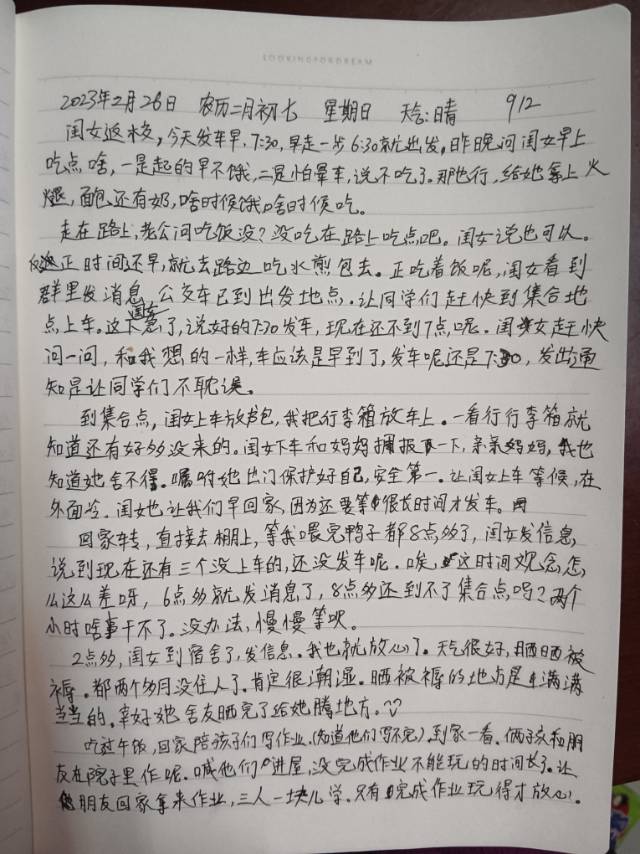 LOOKINGFORDREAM
2023年2月26日 农历二月初七 星期日 天气:晴 912
闺女返校,今天发车早,7:30,早走一步6:30就出发。昨晚问闺女早上
吃点啥,一是起的早不饿,二是怕晕车,说不吃了。那也行,给她拿上火
腿,面包还有奶,啥时候饿啥时候吃。
走在路上,老公问吃饭没?没吃在路上吃点吧。闺女说也可以。
反正时间还早,就去路边吃水煎包去。正吃着饭呢,闺女看到
群里发消息,公交车已到出发地点。让同学们赶快到集合地
点上车。这下闺女急了,说好的7:30发车,现在还不到7点呢。闺女赶快
问一问,和我想的一样,车应该是早到了,发车呢还是7:30,发出通
知是让同学们不耽误。
到集合点,闺女上车放书包,我把行李箱放车上。一看行行李箱就
知道还有好多没来的。闺女下车和妈妈拥抱一下,亲亲妈妈,我也
知道她舍不得。嘱咐她出门保护好自己,安全第一。让闺女上车等候,在
外面冷。闺女也让我们早回家,因为还要等很长时间才发车。
回家车转,直接去棚上,等我喂完鸭子都8点多了,闺女发信息,
说到现在还有三个没上车的,还没发车呢。唉,这时间观念,怎
么这么差呀,6点多就发消息了,8点多还到不了集合点吗?两个
小时啥事干不了。没办法,慢慢等呗。
2点多,闺女到宿舍了,发信息。我也就放心了。天气很好,晒晒被
褥。都两个多月没住人了。肯定很潮湿。晒被褥的地方是满满
当当的。幸好她舍友晒完了给她腾地方。
吃过午饭,回家陪孩子们写作业。(知道他们写不完)到家一看。俩子女和朋
友在院子里作呢。喊他们进屋,没完成作业不能玩的时间长了。让
朋友回家拿来作业,三人一块儿学。只有完成作业玩得才放心。